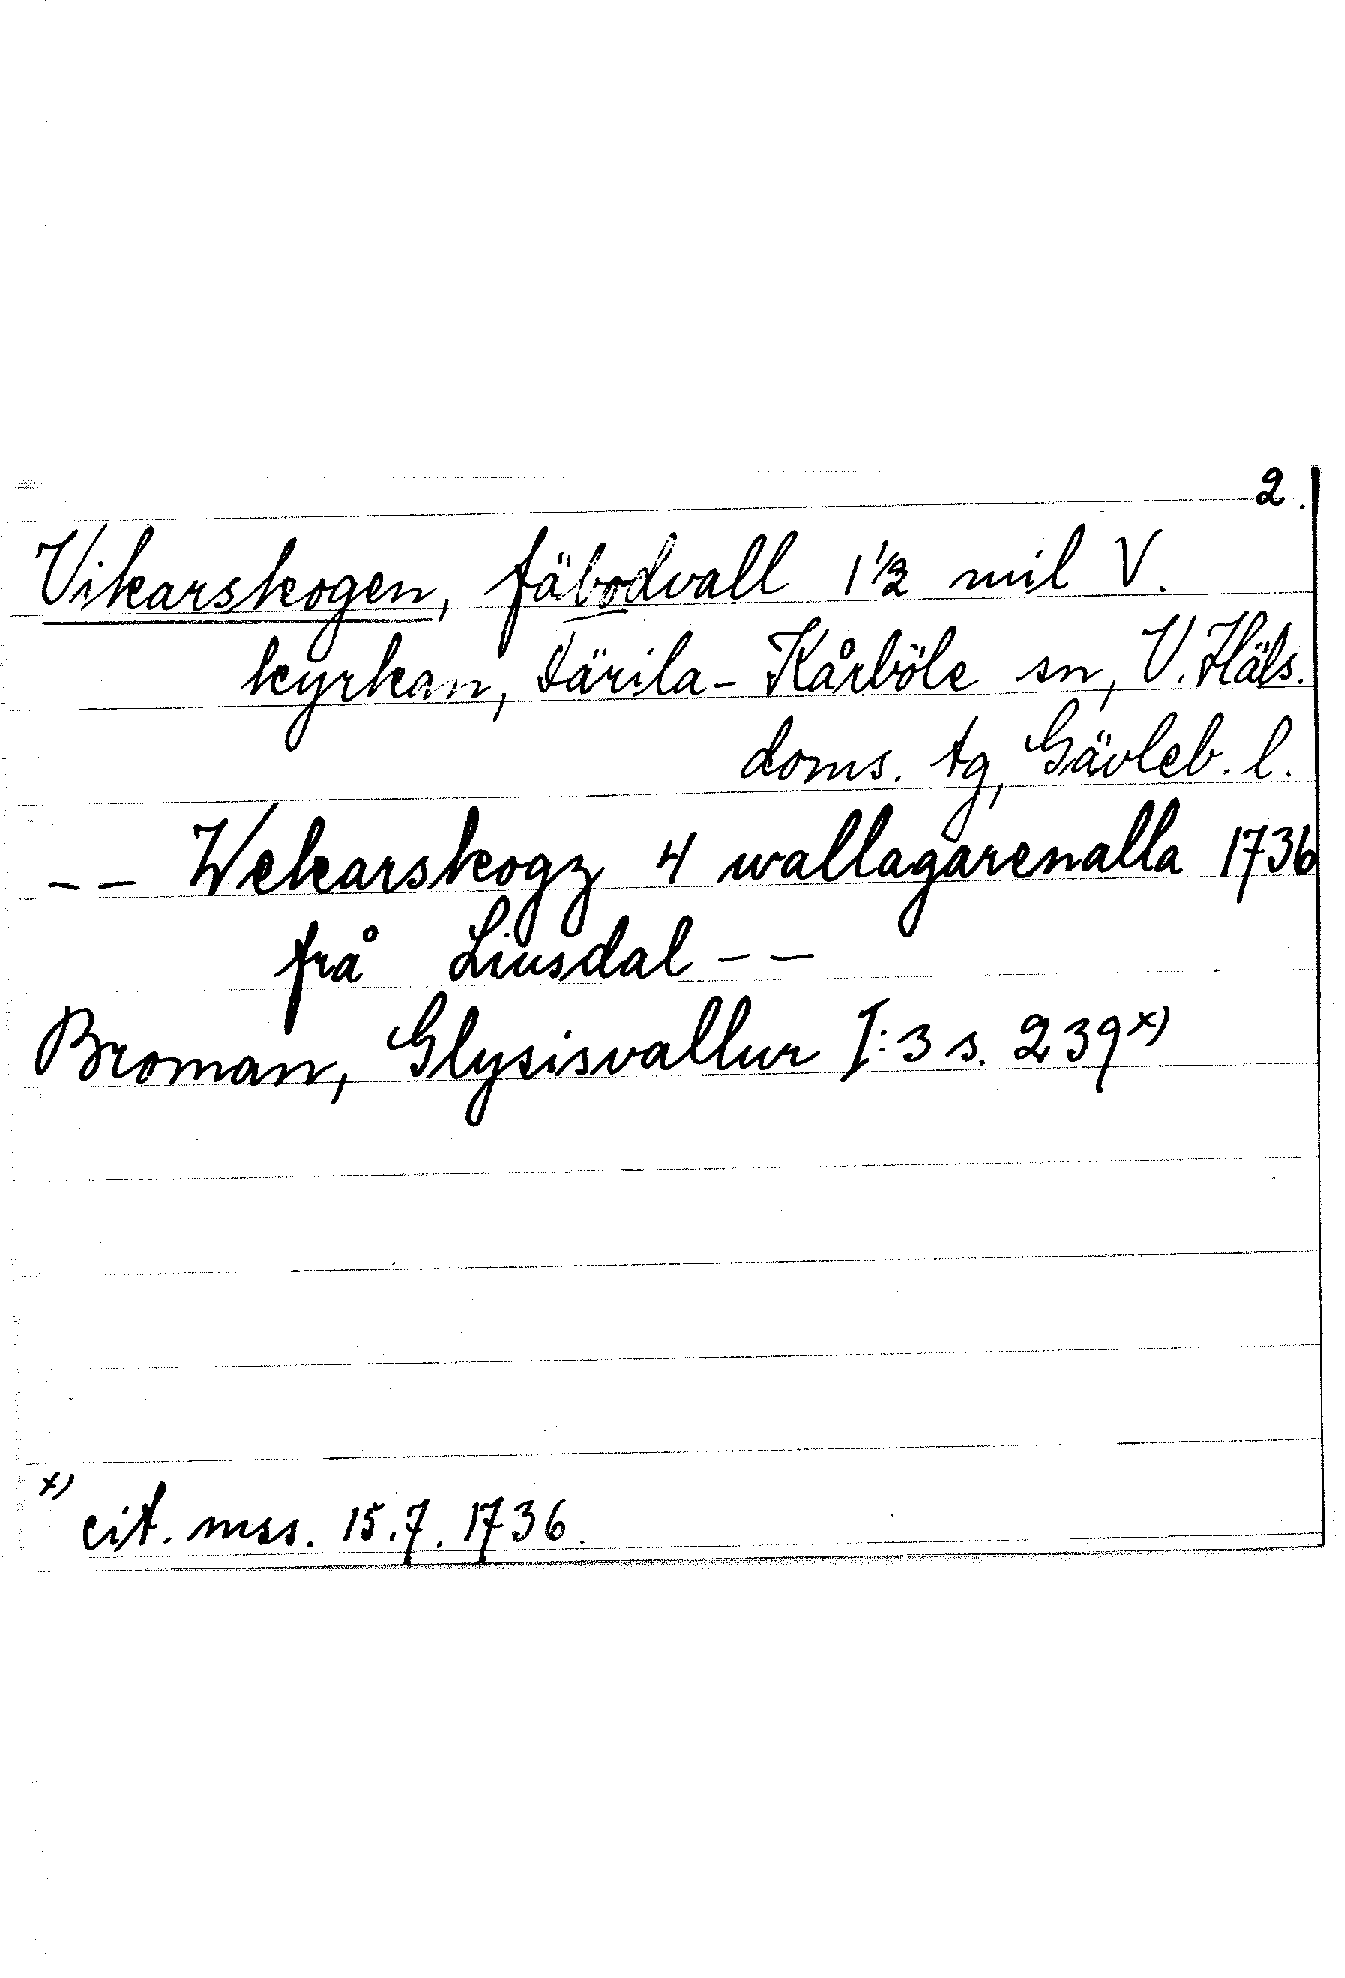 2.
Vikarskogen, fäbodvall 1 1/2 mil V.
kyrkan, Färila-Kårböle sn, V. Häls.
doms. tg, Gävleb. l.
-- Wekarskogz 4 wallagarenalla 1736
frå Liusdal --
Broman, Glysisvallur I:3 s. 239 x)
x) cit. mss. 15.7. 1736.